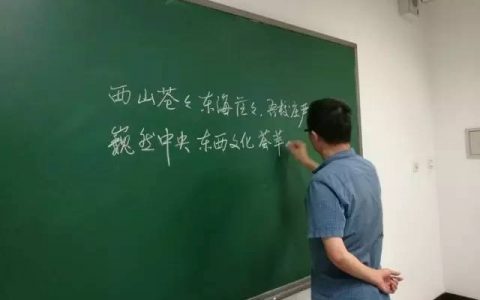 西山苍々东海茫々,学校庄严
巍然中央东西文化荟萃